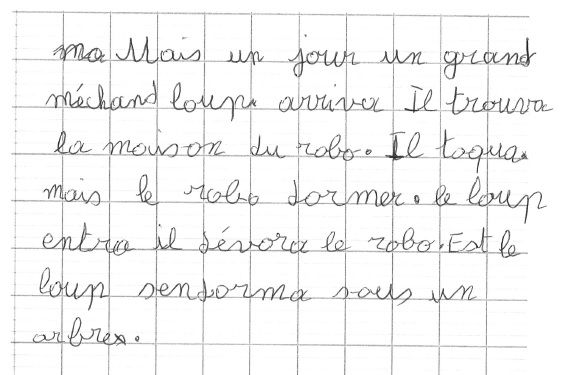 ma Mais un jour un grand
méchand loup. arriva Il trouva
la maison du robo. Il toqua.
mais le robo dormer. le loup
entra il dévora le robo. Est le
loup sendorma sous un
arbres.